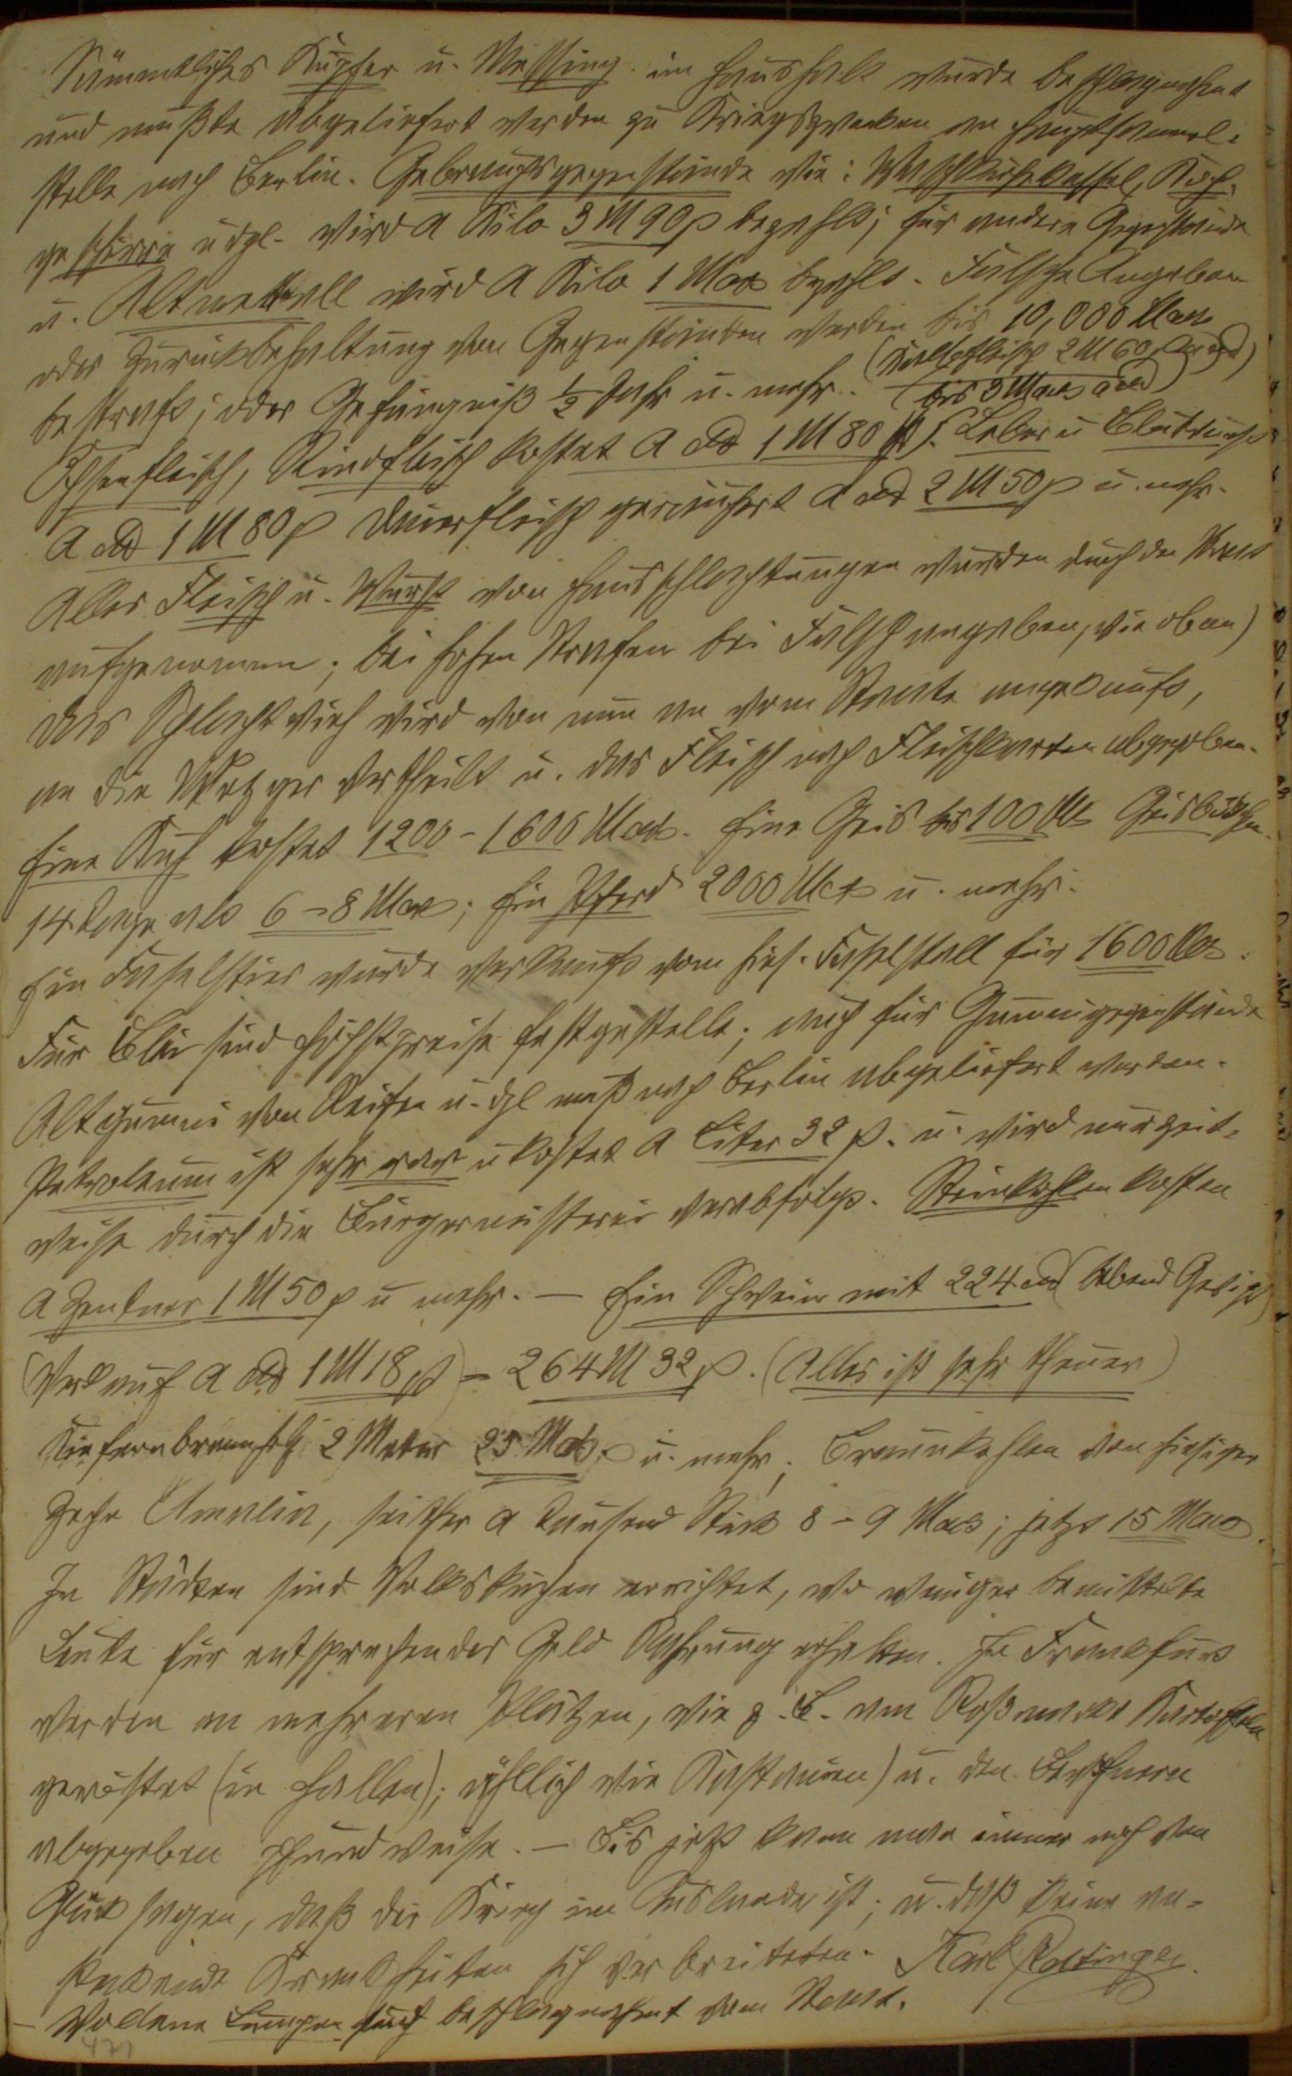 Sämmtliches Kupfer u. Messing im Haushalt wurde beschlagnahmt
und mußte abgeliefert werden zu Kriegszwecken an Hauptsammel-
stelle nach Berlin. Gebrauchsgegenstände wie: Waschküchekessel, Koch-
geschirre u dgl. wird a Kilo 3 M 90 p bezahlt; für andere Gegenstände
u. Altmettall wird a Kilo 1 Mark bezahlt. Falsche Angaben
oder Zurückbehaltung von Gegenständen werden bis 10,000 Mark
(Kalbfleisch 2 M 60 p a Pfd)
bestraft; oder Gefängniß ½ Jahr u. mehr. (bis 3 Mark a Pfd)
Ochsenfleisch, Rindfleisch kostet a Pfd 1 M 80 p. Leber u Blutwurst
a Pfd 1 M 80 p Dürrfleisch geräuchert a Pfd 2 M 50 p u. mehr.
Alles Fleisch u. Wurst von Hausschlachtungen wurden durch den Staat
aufgenommen; bei hohen Strafen bei Falschangaben, wie oben)
Das Schlachtvieh wird von nun an vom Staate angekauft,
an die Metzger vertheilt u. das Fleisch nach Fleischkarten abgegeben.
Eine Kuh kostet 1200 - 1600 Mark. Eine Geis bis 100 Mk Geisböckchen
14 Tage alt 6 - 8 Mark; Ein Pferd 2000 Mark u. mehr.
Ein Faselstier wurde verkauft vom hies. Faselstall für 1600 Mk.
Für Blei sind Höchstpreise festgestellt; auch für Gummigegenstände
Altgummi von Reifen u. dgl muß nach Berlin abgeliefert werden.
Petroleum ist sehr rar u kostet a Liter 32 p. u. wird nur zeit-
weise durch die Bürgermeisterei verabfolgt. Steinkohlen kosten
a Zentner 1 M 50 p u mehr. — Ein Schwein mit 224 Pfd (lebend Gewicht)
(Verkauf a Pfd 1 M 18 p) = 264 M 32 p. (Alles ist sehr theuer)
Kiefernbrennholz 2 Meter 25 Mark u. mehr; Braunkohlen von hiesiger
Zeche Amalia, seither a Tausend Stück 8 - 9 Mark; jetzt 15 Mark.
In Städten sind Volksküchen errichtet, wo weniger bemittelte
Leute für entsprechendes Geld Nahrung erhalten. In Frankfurt
werden an mehreren Plätzen, wie z. B. am Roßmarkt Kartoffeln
geröstet (in Hallen); ähnlich wie Kastanien) u. den Bewohnern
abgegeben pfundweise. — Bis jetzt kann man immer noch von
Glück sagen, daß der Krieg im Auslande ist; u. daß keine an-
steckende Krankheiten sich verbreiteten. Karl
— Wollene Lumpen sind beschlagnahmt vom Staat.